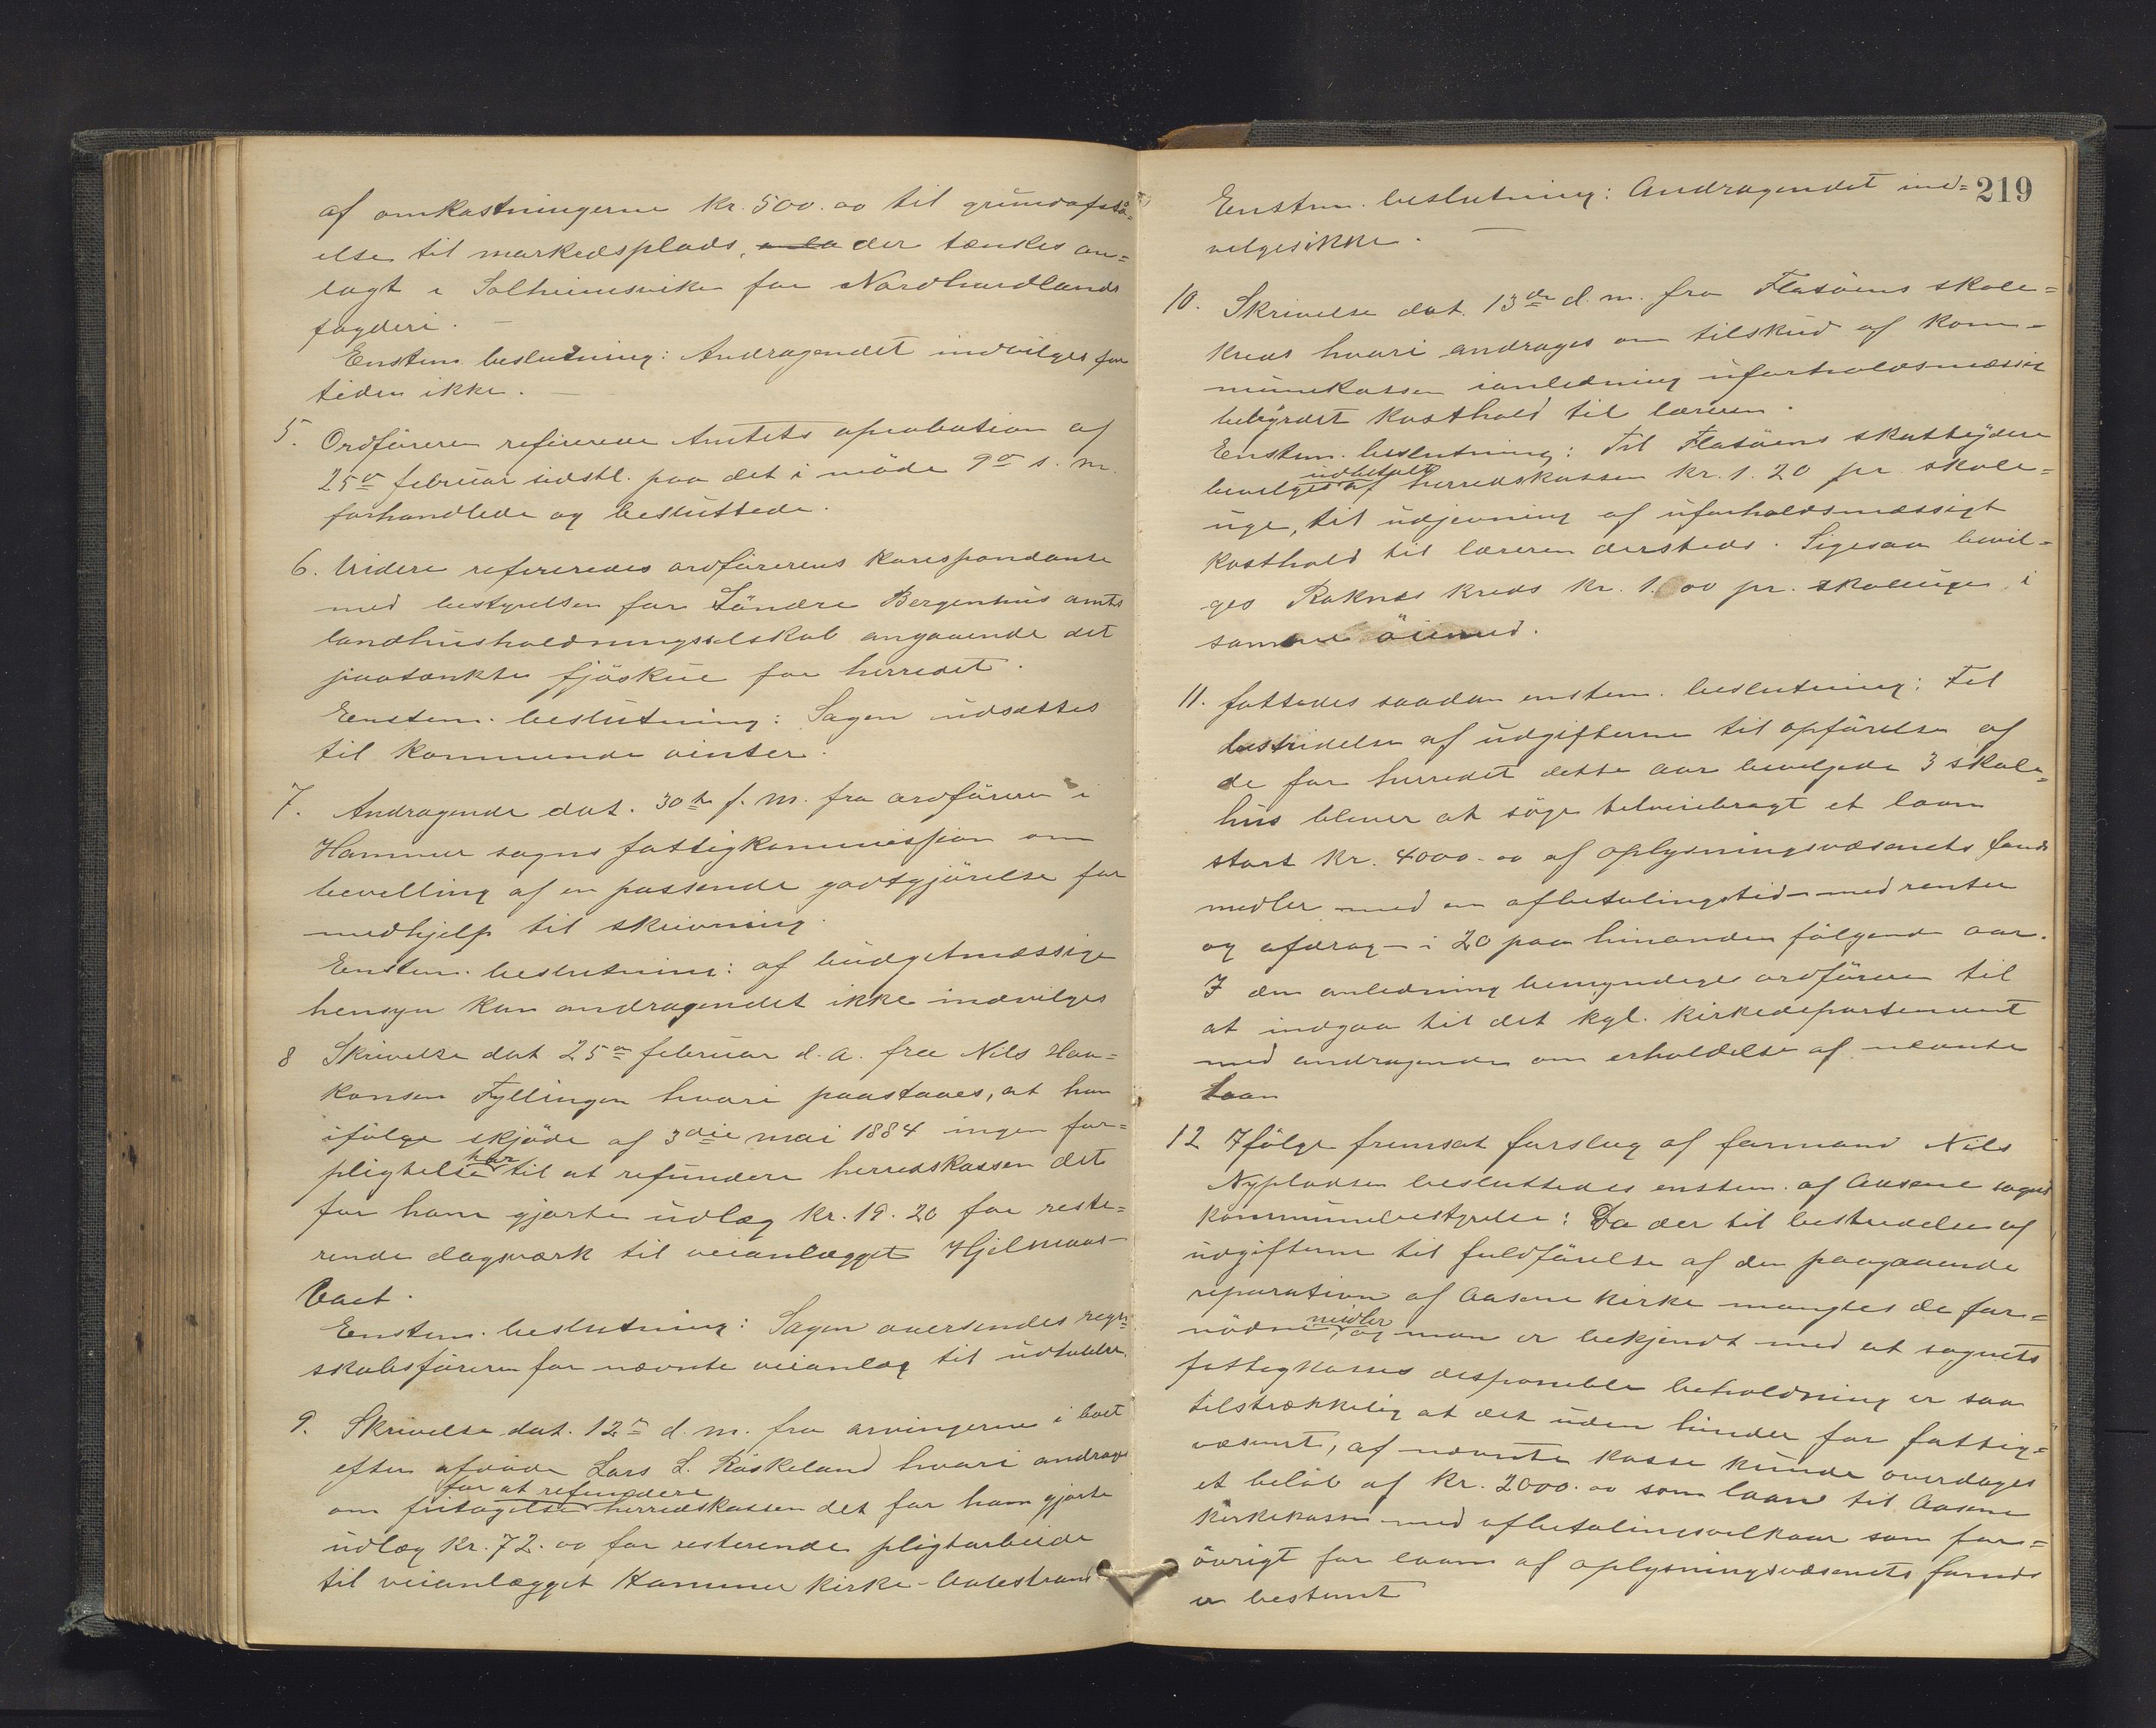 af omkostningerne kr. 500.00 til grundafstå=
else til markedsplads, der tænkes an=
lagt i Solheimsviken for Nordhordlands
fogderi. —
Enstem. beslutning: Andragendet indvilges for
tiden ikke. —
5. Ordføreren refererede Amtets aprobation af
25de februar udstl. paa det i møde 9de s. m.
forhandlede og besluttede.
6. Videre refereredes ordførerens korespondante
med bestyrelsen for Søndre Bergenhus amts
landhusholdningsselskab angaaende det
paatænkte fjøskue for herredet.
Enstem. beslutning: Sagen udsættes
til kommende vinter.
7. Andragende dat. 30te f. m. fra ordføreren i
Hammer sogns fattigkommission om
bevelling af en passende godtgjørelse for
medhjelp til skrivning.
Enstem. beslutning: af budgetmæssige
hensyn kan andragendet ikke indvilges
8 Skrivelse dat 25de februar d. a. fra Nils Haa=
konsen Fyllingen hvori paastaaes, at han
ifølge skjøde af 3die mai 1884 ingen for=
pligtelse har til at refundere herredskassen det
for ham gjorte udlæg kr. 19.20 for reste=
rende dagsværk til veianlægget Hjelmaas-
Vaet.
Enstem. beslutning: Sagen oversendes regn=
skabsføreren for nævnte veianlæg til udtalelse.
9. Skrivelse dat. 12te d. m. fra arvingerne i boet
efter afdøde Lars L. Røskeland hvori andrages
om fritagelse for at refundere herredskassen det for ham gjorte
udlæg kr. 72.00 for resterende pligtarbeide
til veianlægget Hammer kirke - Valestrand
219
Enstem. beslutning: Andragendet ind=
velges ikke. —
10. Skrivelse dat. 13de d. m. fra Flatøens skole=
kreds hvori andrages om tilskud af kom=
munekassen ianledning uforholdsmæssig
bebyrdet kosthold til læreren.
Enstem. beslutning: Til Flatøens skatteydere
bevelges udbetalt af herredskassen kr. 1.20 pr. skole=
uge, til udjevning af uforholdsmæssigt
kosthold til læreren dersteds. Ligesaa bevil=
ges Raknes kreds kr. 1.00 pr. skoleuge i
samme øiemed.
11. fattedes saadan enstem. beslutning: Til
bestridelse af udgifterne til opførelse af
de for herredet dette aar bevelgede 3 skole=
hus blever at søge tilveiebragt et laan
stort kr. 4000.00 af oplysningsvæsenets fonds
medler med en afbetalingstid - med renter
og afdrag - i 20 paa hinanden følgende aar.
I den anledning bemyndiges ordføreren til
at indgaa til det kgl. kirkedepartement
med andragende om erholdelse af nævnte
laan
12 Ifølge fremsat forslag af formand Nils
Nypladsen besluttedes enstem. af Aasene sogns
kommunebestyrelse: Da der til bestridelse af
udgifterne til fuldførelse af den paagaaende
reparation af Aasene kirke mangles de for=
nødne midler og man er bekjendt med at sognets
fattigkasses desponible beholdning er saa
tilstrækkelig at det uden hinder for fattig=
væsenet, af nævnte kasse kunde overdages
et beløb af kr. 2000.00 som laan til Aasene
kirkekasse med afbetalingsvilkaar som for=
øvrigt for laan af oplysningsvæsenets fonds
er bestemt